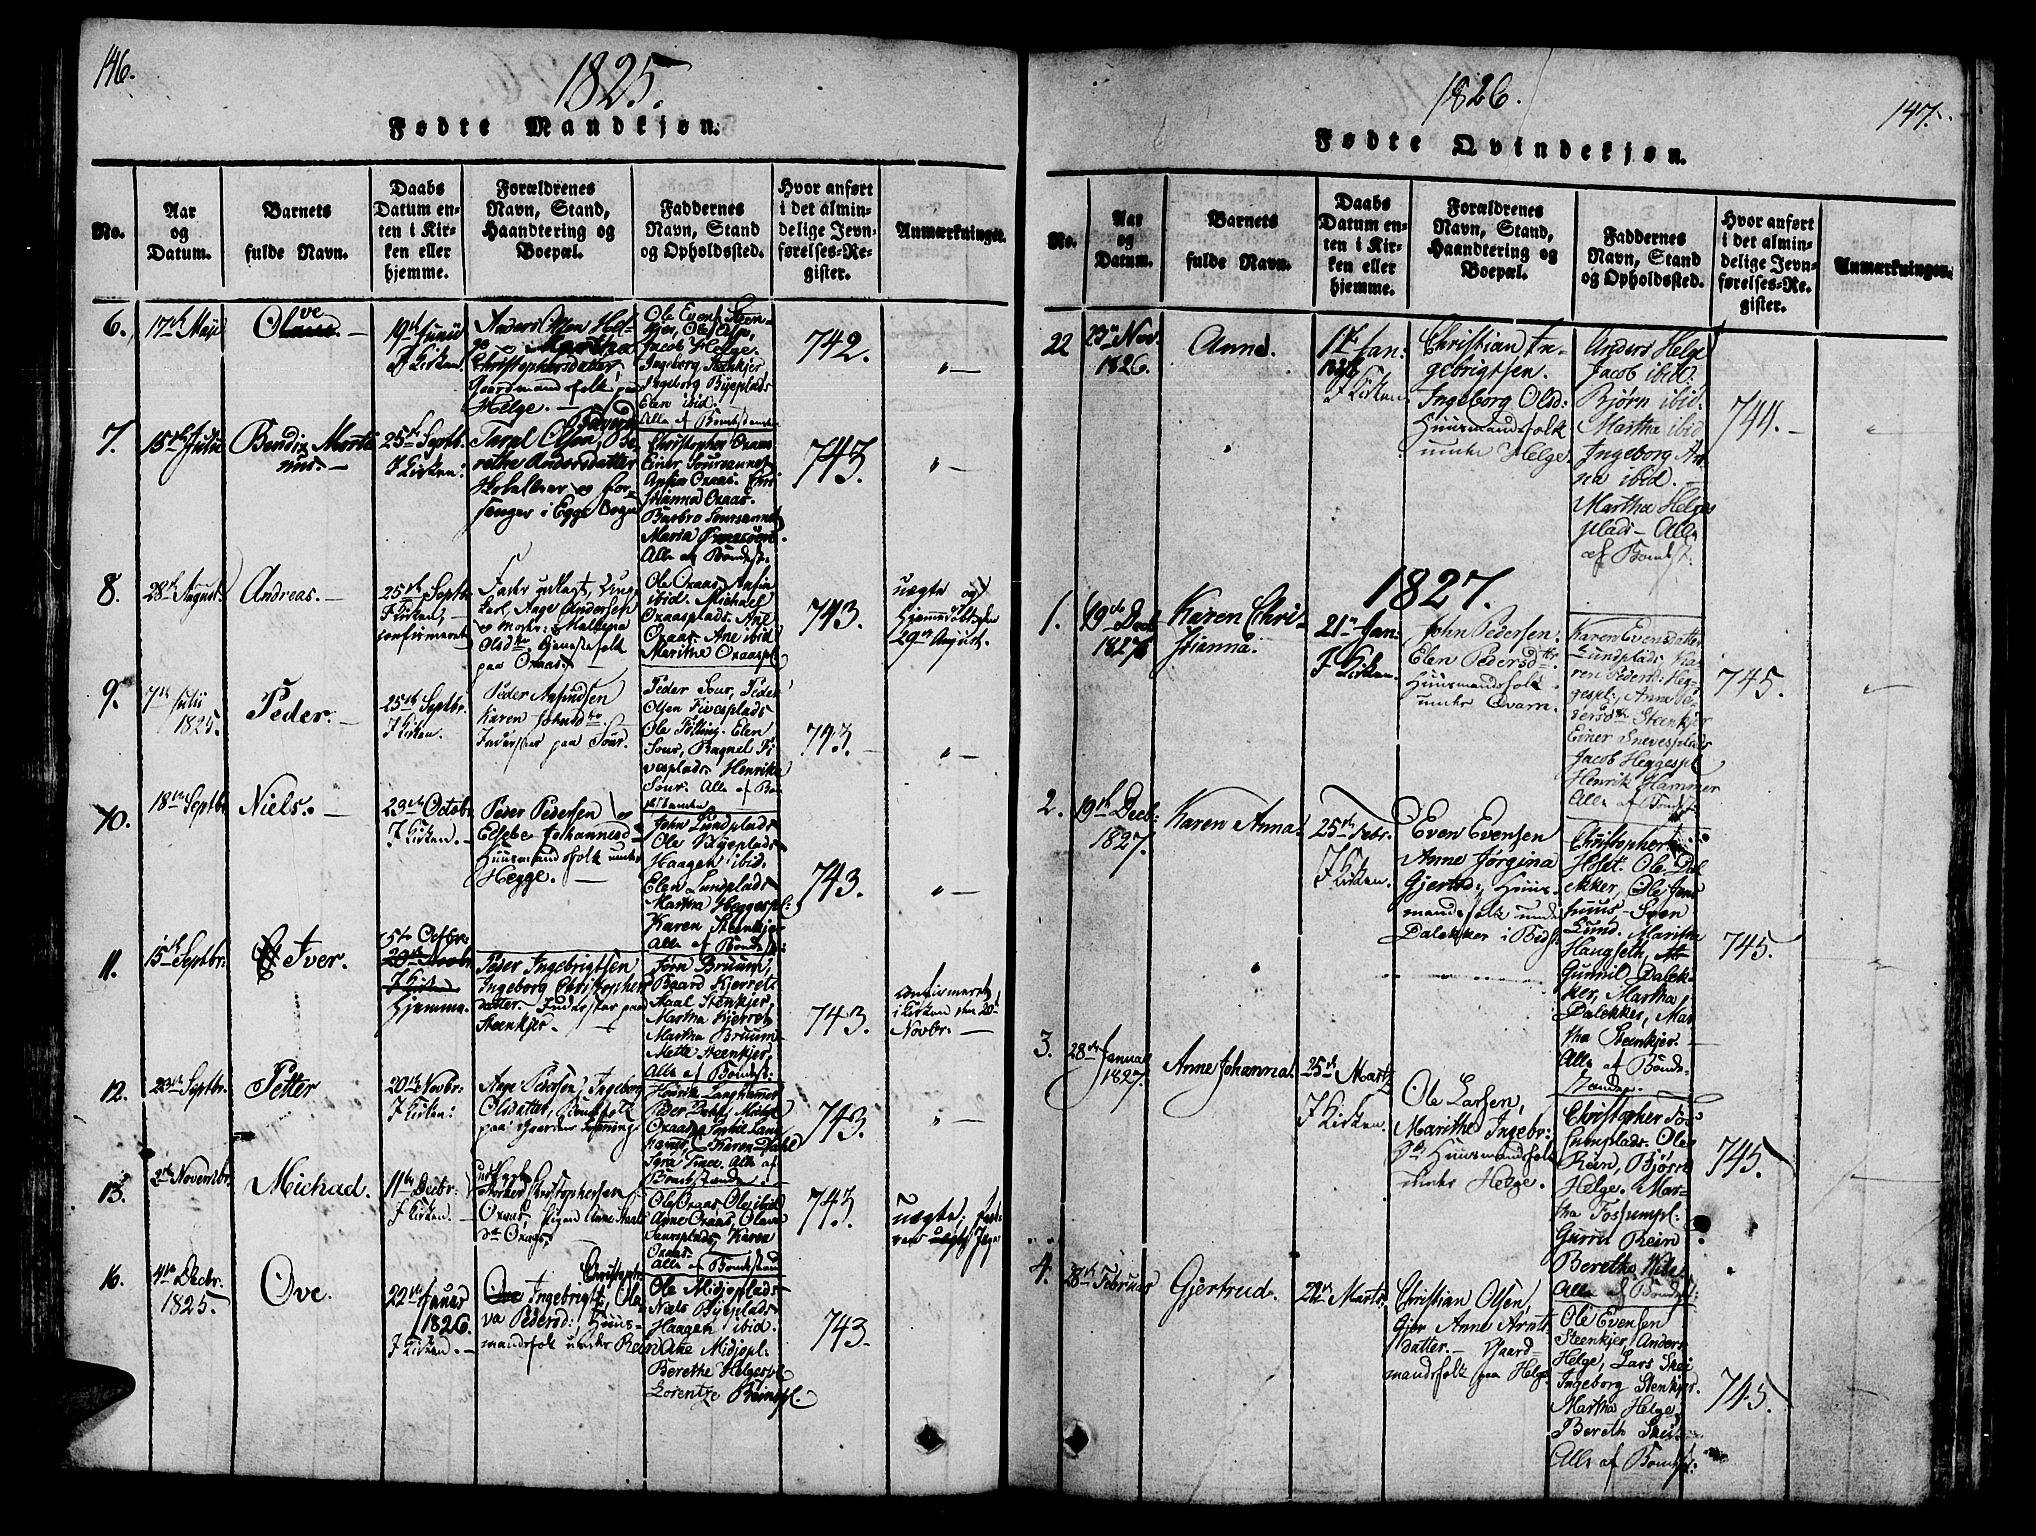 146.
1825.
Fødte Mandkjøn.
No.
Aar
og
Datum.
Barnets
fulde Navn.
Daabs
Datum en-
ten i Kir-
ken eller
hjemme.
Forældrenes
Navn, Stand,
Haandtering og
Boepæl.
Faddernes
Navn, Stand
og Opholdssted.
Hvor anført
i det almin-
delige Jevn-
førelses-Re-
gister.
Anmærkninger.
6.
17de Maji
Ove
19de Junii
J Kirken.
Anders Olsen Hel-
ge Martha
Christophersdatter,
Gaardmandsfolk paa
Helge.
Ole Evensen Steen-
kjer, Ole Olsen,
Jacob Helge.
Ingeborg Steenkjer,
Ingeborg Byeplads
Elen ibid.
Alle af Bondestanden
742.
7.
15de Julii
Bendix Morte
nus.
25de Septb.
J Kirken:
Tarel Olsen, Be-
rethe Andersdatter
Skoelelærer og For-
sanger i Egge Sogn
Christopher Oxaas
Einer Soursannet
Anfin Oxaas.
stianna Oxaas.
Barbro Soursannet
Maria
Alle af Bondest:
743.
8.
28de August.
Andreas.
25de Septb.
J Kirken,
confirmeret
Fader udlagt, Ung-
karl Aage Andersen
og Moder: Mallena
Olsdtr. Tjenestefolk
paa Oxaas.
Ole Oxaas, Anfin
ibid. Michael
Oxaasplads. Ane
Oxaas. Ane ibid
Marithe Oxaaspl.
743.
uægte og
hjemmedøbt den
29de August.
9.
7de Julii
1825.
Peder.
25de Septbr.
J Kirken.
Peder Amundsen
Karen Johnsdtr.
Inderster paa Sour.
Peder Sour, Peder
Olsen Fivesplads
Ole Følling. Elen
Sour, Ragnel Fi
vesplads. Henrika
Sour. Alle af Bon
destanden
743.
10.
18de Septbr
Niels.
23de Octobr.
J Kirken.
Peder Pedersen og
Elsebe Johannesd:
Huusmandsfolk under
Hegge.
John Lundplads
Ole Byeplads
Haagen ibid.
Elen Lundplads
Martha Heggespl:
Karen Steenkjer
Alle af Bondest:
743.
11.
15de Septbr.
Iver.
5te Octbr.
J Kirken
Hjemme.
Peder Ingebrigtsen
Ingeborg Christopher
datter. Inderster paa
Steenkjer.
Jørn Bruum,
Baard Kjerret
Aaal Stenkjer,
Martha Kjerret
Martha Bruum
Mette Steenkjer,
Alle af Bondest:
743.
confirmeret
i Kirken den 20de
Novbr.
12.
23de Septbr.
Petter
20de Novbr.
J Kirken:
Aage Pedersen, Ingeborg
Olsdatter, Bondefolk
paa Gaarden
Henrik Langhammer
Peder Dahl,
Oxaas, Sophie Lang
hamer, Karen Dahl
Alle af
Bondestanden
743.
13.
2de Novembr.
Michael.
11te Decbr.
J Kirken.
Christophersen
Oxaas, Pigen Anne
Oxaas.
Ole Oxaas, Ole ibid
Anne Oxaas, Olava
Sunsplads, Karen
Oxaas.
Alle af Bondestand
743.
uægte,
16.
4de Decbr.
1825.
Ove.
22de Januar
1826.
J Kirken.
Christoph
Ingebrigts, Ole
va Pedersd: Huus-
mandsfolk under Rein
Ole Midjeplads
Niels Byeplads
Haagen ibid.
Ane Midjepl.
Berethe Helgespl
Lorentze Reinspl.
743.
1826.
147.
Fødte Qvindekjøn.
No.
Aar
og
Datum.
Barnets
fulde Navn.
Daabs
Datum en-
ten i Kir-
ken eller
hjemme.
Forældrenes
Navn, Stand,
Haandtering og
Boepæl.
Faddernes
Navn, Stand
og Opholdssted.
Hvor anført
i det almin-
delige Jevn-
førelses-Re-
gister.
Anmærkninger.
22
23de Nov.
1826.
Anne.
1te Jan:
J Kirken.
Christian In-
gebrigtsen.
Ingeborg Olsd:
Huusmandsfolk
under Helge.
Anders Helge
Jacob ibid:
Bjørn ibid.
Martha ibid
Ingeborg An-
na ibid.
Martha Helges
plads - Alle
af Bondst.
744.
1827.
1.
19de Decb
1827
Karen Chri-
stianna.
21de Jan:
J Kirken.
John Pedersen.
Elen Pedersdtr.
Huusmandsfolk
under Qvam.
Karen Evensdatter
Lundplads, Ka-
ren Pedersd: Heg-
gespl: Anne Pe-
dersdtr. Steenkjer
Einer Snevesplads
Jacob Heggespl
Henrik Hammer
Alle af Bondst.
745.
2.
19de Decb:
1827.
Karen Anna.
25de Febr.
J Kirken.
Even Evensen
Anne Jørgina
Gjertsd: Huus-
mandsfolk under
Dalekker i Bidst
Christopher
Hoset. Ole Dal
ekker, Ole Jem
tuus - Sven
Lund. Maritha
Haugseth,
Gunnil Dalek-
ker, Martha
Dalekker, Mar
tha Steenkjer.
Alle af Bonde-
standen.
745.
3.
28de Januar
1827.
Anne Johanna.
25de Marts
J Kirken.
Ole Larsen,
Marithe Ingebr:
Huusmandsfolk
under Helge.
Christopher Fos
sumplads. Ole
Rein, Bjørn
Helge. Mar-
tha Fossumpl:
Gurru Rein
Berethe
Alle af Bondest:
745.
4.
8de Februar
Gjertrud.
22de Marts.
Christian Olsen,
Anne Arnt
datter. - Gaard-
mandsfolk paa Helge
Ole Evensen
Steenkjer, Anders
Helge, Lars Skei
Ingeborg Stenkjer.
Martha Helge.
Bereth Skei.
Alle af Bondest:
745.